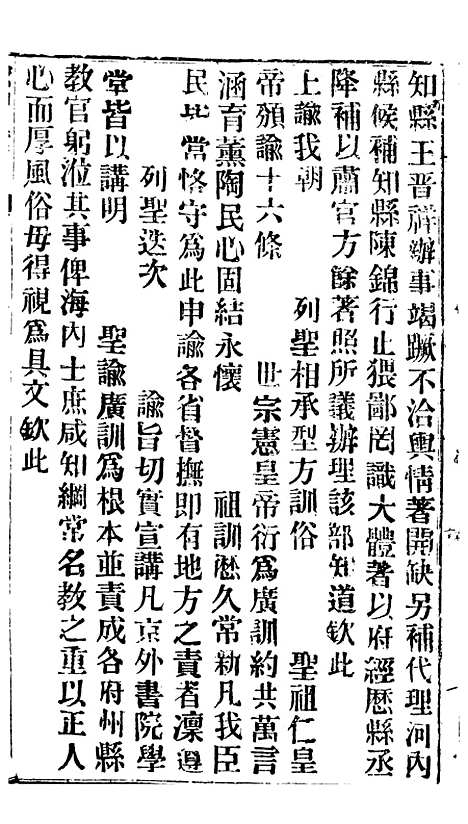 知縣王晋祥辦事竭蹶不洽輿情著開缺另補代理河內
縣候補知縣陳錦行止猥鄙罔識大體著以府經歷縣丞
降補以肅官方餘著照所議辦理該部知道欽此
上諭我朝 列聖相承型方訓俗 聖祖仁皇
帝頒諭十六條 世宗憲皇帝衍爲廣訓約共萬言
涵育薰陶民心固結永懷 祖訓歷久常新凡我臣
民均當恪守爲此申諭各省督撫即有地方之責者凜遵
列聖迭次 諭旨切實宣講凡京外書院學
堂皆以講明 聖諭廣訓爲根本並責成各府州縣
教官躬涖其事俾海內士庶咸知綱常名教之重以正人
心而厚風俗毋得視爲具文欽此